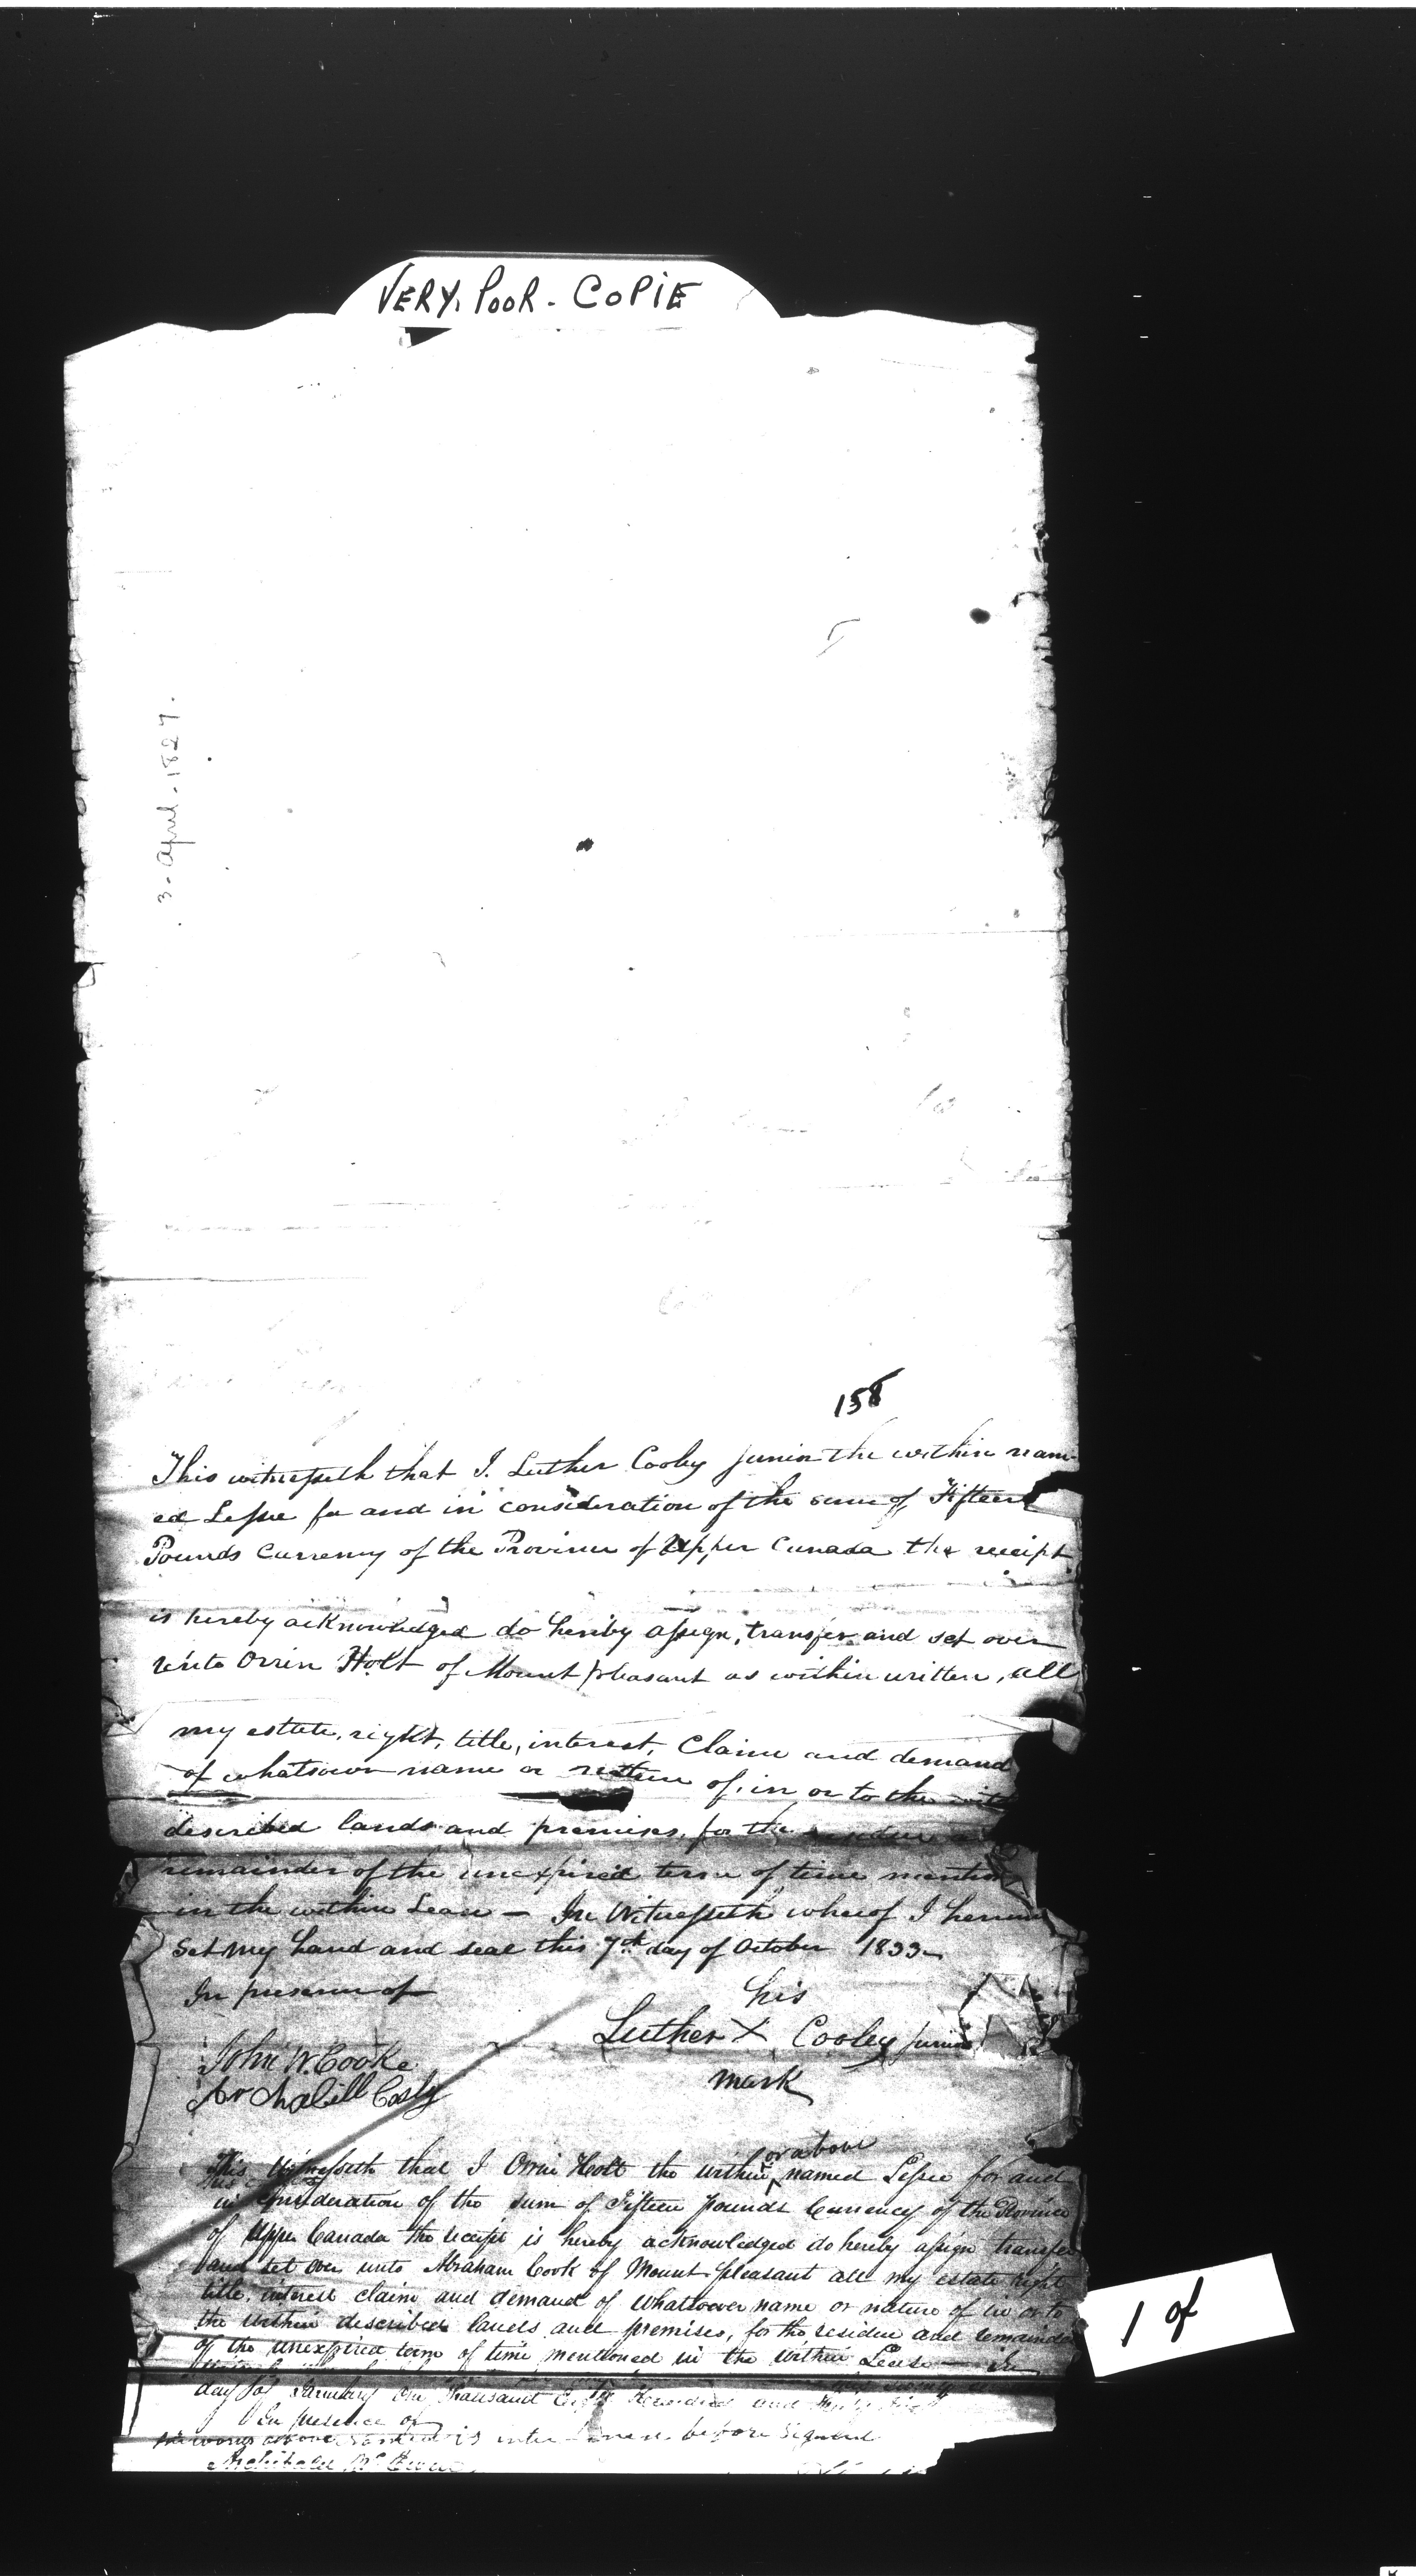 VERY. POOR - COPIE
3 - April - 1827.
158
This witnesseth that I. Luther Cooley junior the within nam-
ed Lessee for and in consideration of the sum of Fifteen
Pounds Currency of the Province of Upper Canada the receipt
is hereby acknowledged do hereby assign, transfer and set over
unto Orrin Holt of Mount pleasant as within written, all
my estate, right, title, interest, Claim and demand
of whatsoever name or nature of, in or to the
described lands and premises, for the residue
remainder of the unexpired term of time
in the within Lease — In Witnesseth whereof I
Set my hand and seal this 7th day of October 1833
In presence of
his
Luther X Cooley junior
mark
John W. Cooke
This Witnesseth that I Orrin Holt the within or above named Lessee for and
in Consideration of the sum of Fifteen pounds Currency of the Province
of Upper Canada the receipt is hereby acknowledged do hereby assign transfer
and set over unto Abraham Cook of Mount pleasant all my estate right
title, interest claim and demand of whatsoever name or nature of in or to
the within described lands and premises, for the residue and remainder
of the unexpired term of time mentioned in the within Lease — In
day of One Thousand Eight Hundred and
In presence of
before signed
Archibald
1 of